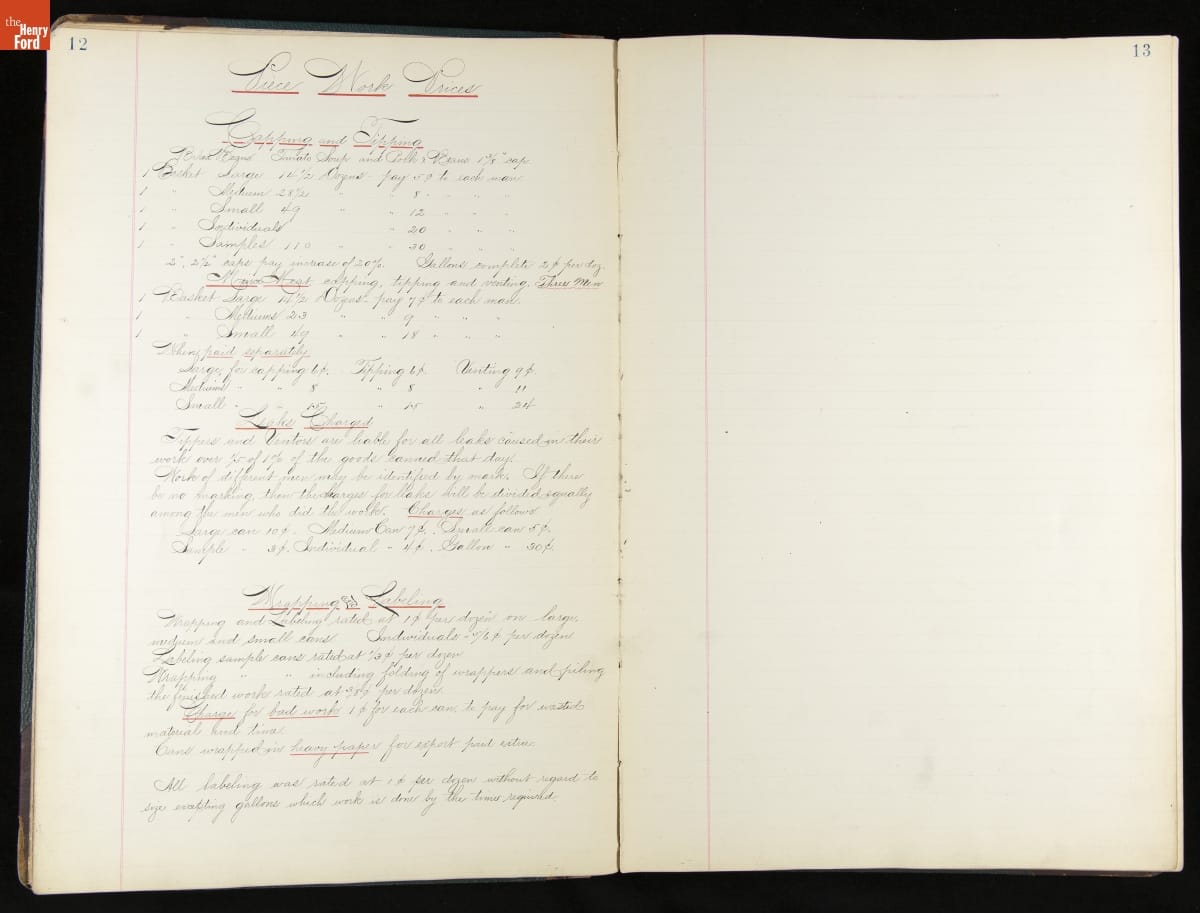 the
Henry
Ford
12
13
Piece Work Prices
Capping and Tipping
Baked Beans Tomato Soup and Pork & Beans 1 5/8" cap
1 Basket Large 14 1/2 Dozens - pay 5¢ to each man
1 " Medium 28 1/2 " " 8 " " "
1 " Small 49 " " 12 " " "
1 " Individuals " 20 " " "
1 " Samples 110 " " 30 " " "
2", 2 1/2" caps pay increase of 20%. Gallons complete 2¢ per doz.
Mince Meat capping, tipping and venting. Three Men
1 Basket Large 14 1/2 Dozens - pay 7¢ to each man.
1 " Mediums 23 " " 9 " " "
1 " Small 49 " " 18 " " "
When paid separately
Large, for capping 6¢. Tipping 6¢ Venting 9¢.
Mediums " " 8 " 8 " 11
Small " " 15 " 15 " 24
Leaks Charged
Tippers and Ventors are liable for all leaks caused in their
work over 1/5 of 1% of the goods canned that day.
Work of different men may be identified by mark. If there
be no marking, then the charges for leaks will be divided equally
among the men who did the work. Charges as follows
Large can 10¢. Medium Can 7¢. Small can 5¢.
Sample " 3¢. Individual " 4¢. Gallon " 30¢.
Wrapping and Labeling
Wrapping and Labeling rated at 1¢ per dozen on large,
medium and small cans Individuals - 5/6¢ per dozen
Labeling sample cans rated at 1/3¢ per dozen
Wrapping " " including folding of wrappers and piling
the finished work rated at 3/8¢ per dozen.
Charge for bad work 1¢ for each can, to pay for wasted
material and time.
Cans wrapped in heavy paper for export paid extra.
All labeling was rated at 1¢ per dozen without regard to
size excepting gallons which work is done by the time required.